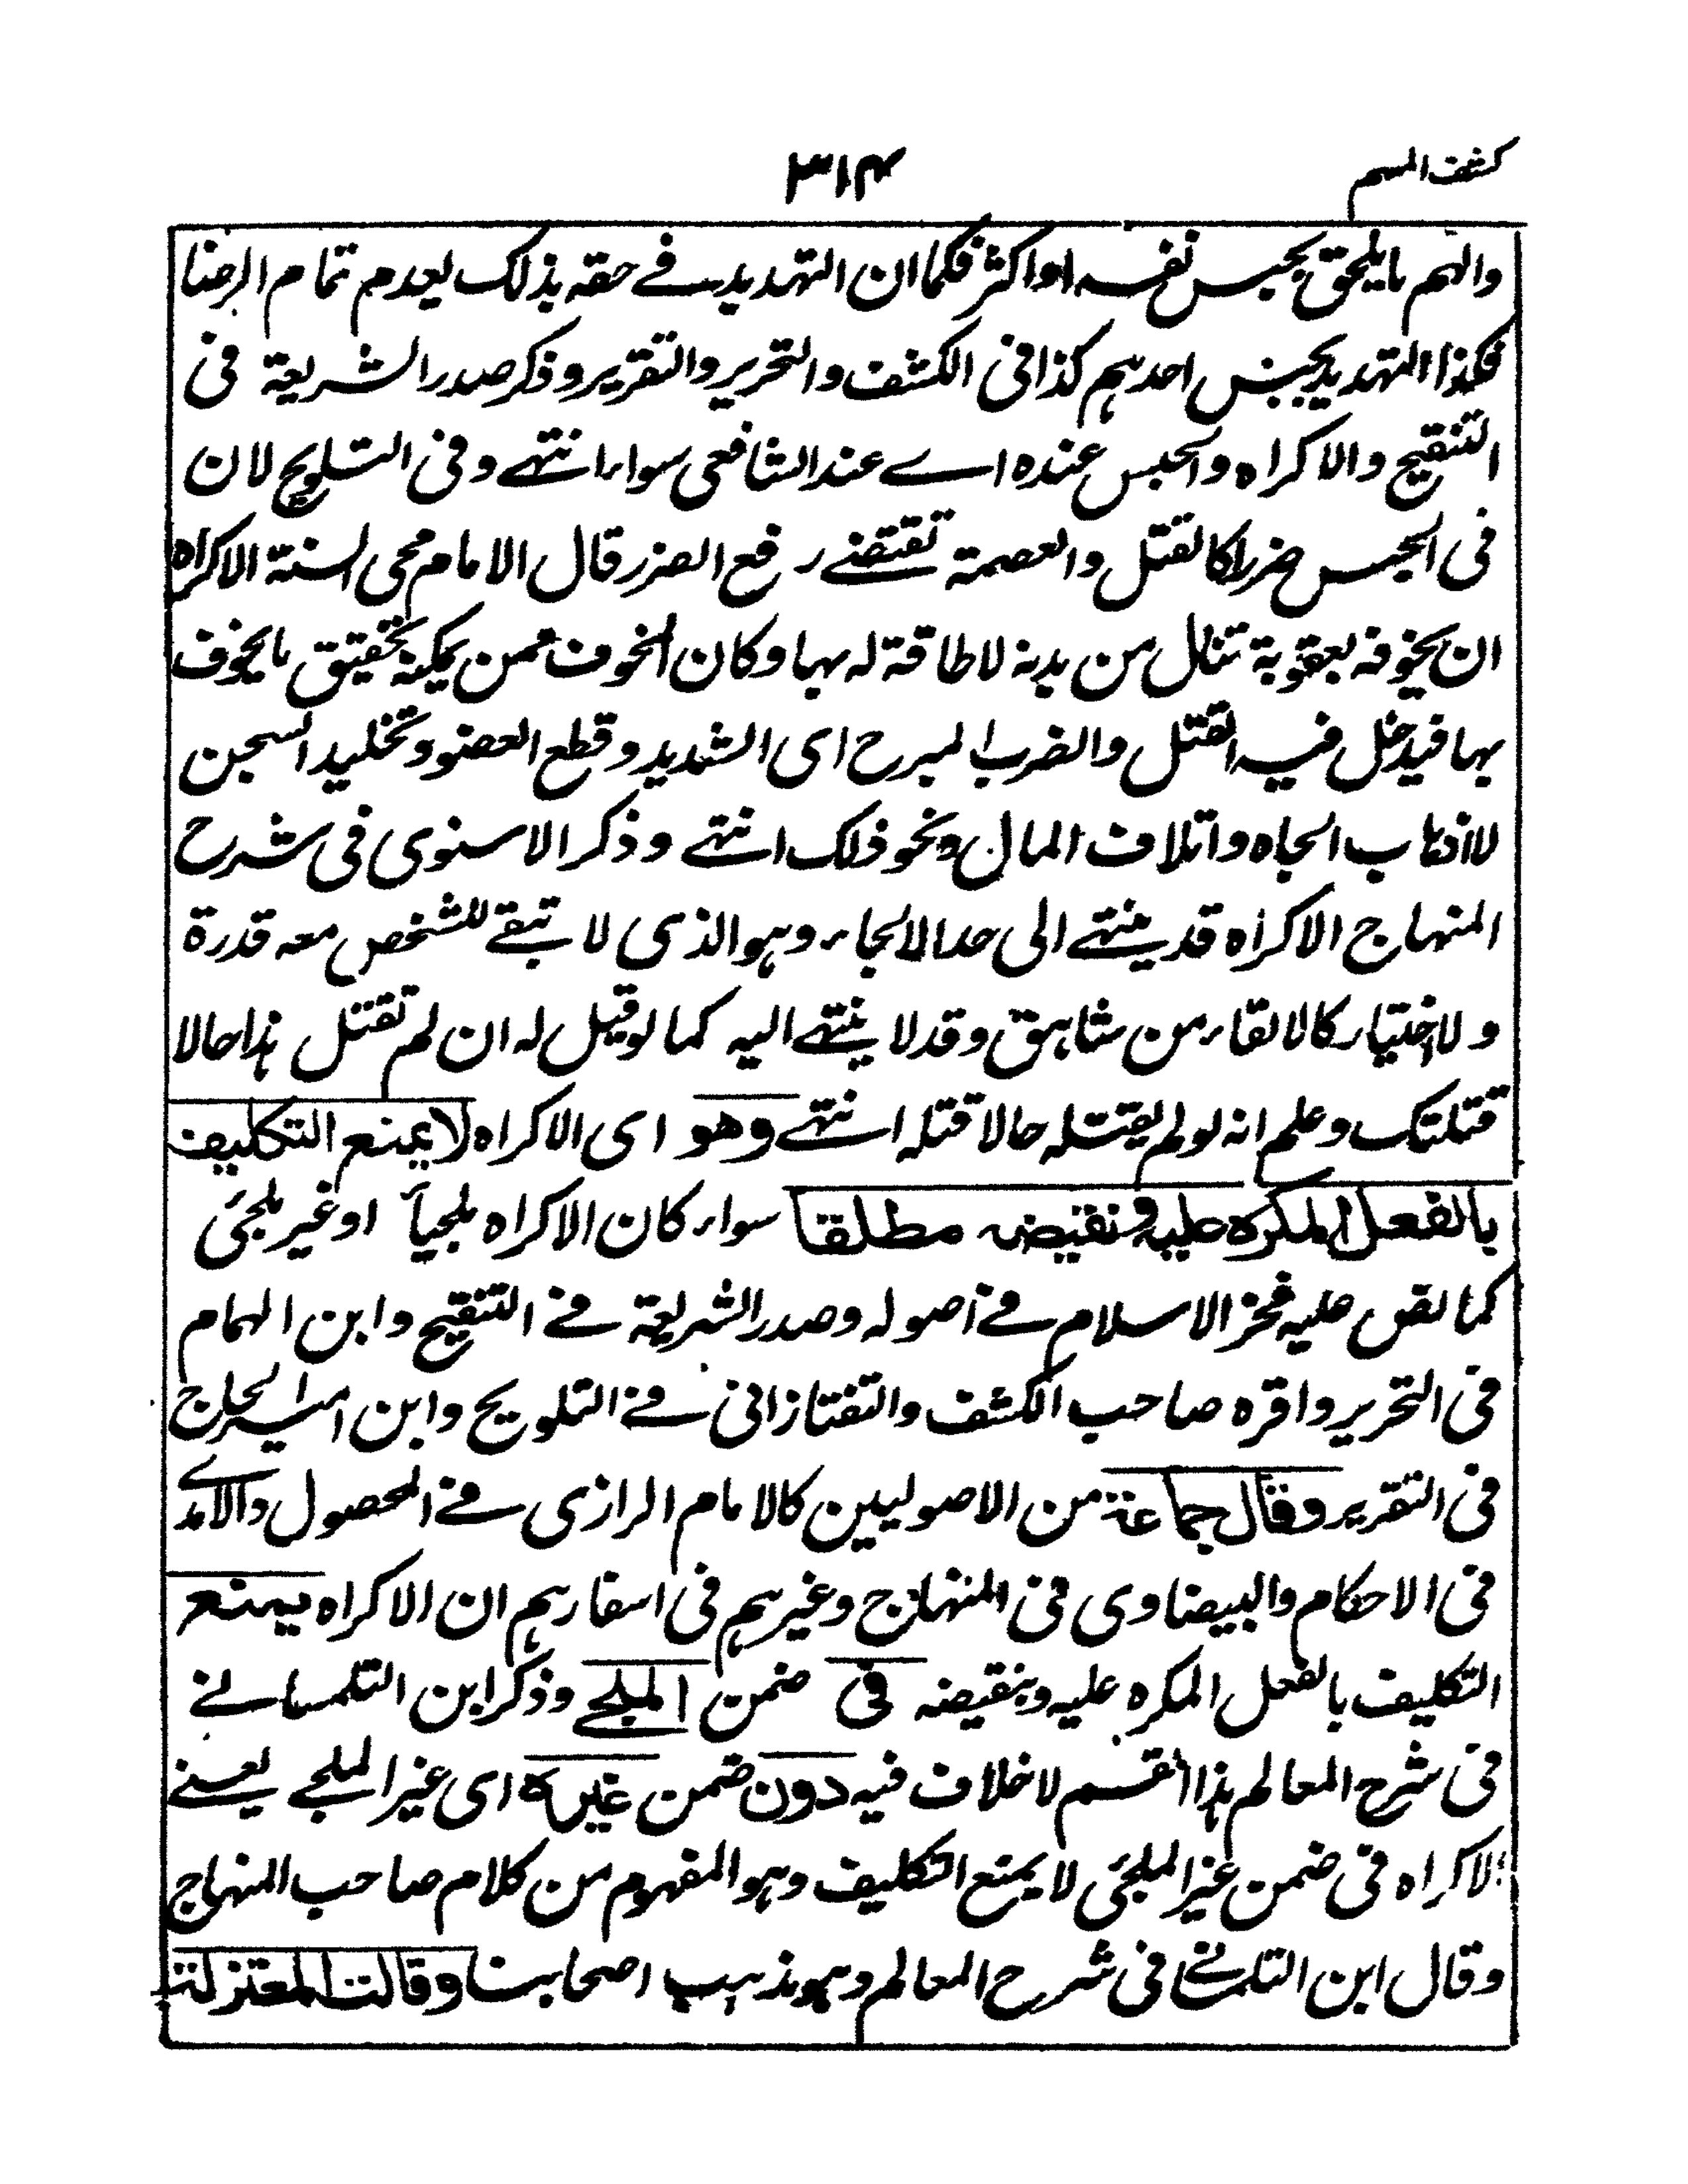 كشف المبهم
٣١٤
والهم ما يلحق بحبس نفسه او اكثر فكما ان التهديد فے حقه بذلك يعدم تمام الرضا
فكذا التهديد بحبس احدهم كذا فی الكشف والتحرير والتقرير وذكر صدر الشريعة فی
التنقيح والاكراه والحبس عنده اے عند الشافعی سواء انتهے وفی التلويح لان
فی الحبس ضررا كالقتل والعصمة تقتضے رفع الضرر قال الامام محی السنة الاكراه
ان يخوفه بعقوبة تنال من بدنه لا طاقة له بها وكان المخوف ممن يمكنه تحقيق ما يخوف
بها فيدخل فيه القتل والضرب المبرح ای الشديد وقطع العضو وتخليد السجن
لا اذهاب الجاه واتلاف المال ونحو ذلك انتهے وذكر الاسنوی فی شرح
المنهاج الاكراه قد ينتهے الی حد الالجاء وهو الذی لا تبقے للشخص معه قدرة
ولا اختيار كالالقاء من شاهق وقد لا ينتهے اليه كما لو قيل له ان لم تقتل هذا حالا
قتلتك وعلم انه لو لم يقتله حالا قتله انتهے وهو ای الاكراه لا يمنع التكليف
بالفعل المكره عليه ونقيضه مطلقا سواء كان الاكراه ملجياً او غير ملجئی
كما نص عليه فخر الاسلام فے اصوله وصدر الشريعة فے التنقيح وابن الهمام
فی التحرير واقره صاحب الكشف والتفتازانی فے التلويح وابن امير الحاج
فی التقرير وقال جماعة من الاصوليين كالامام الرازی فے المحصول والآمدے
فی الاحكام والبيضاوی فی المنهاج وغيرهم فی اسفارهم ان الاكراه يمنع
التكليف بالفعل المكره عليه وبنقيضه فی ضمن الملجے وذكر ابن التلمسانے
فی شرح المعالم هذا القسم لا خلاف فيه دون ضمن غيره ای غير الملجے يعنے
الاكراه فی ضمن غير الملجئی لا يمنع التكليف وهو المفهوم من كلام صاحب المنهاج
وقال ابن التلمسانے فی شرح المعالم وهو مذهب اصحابنا وقالت المعتزلة